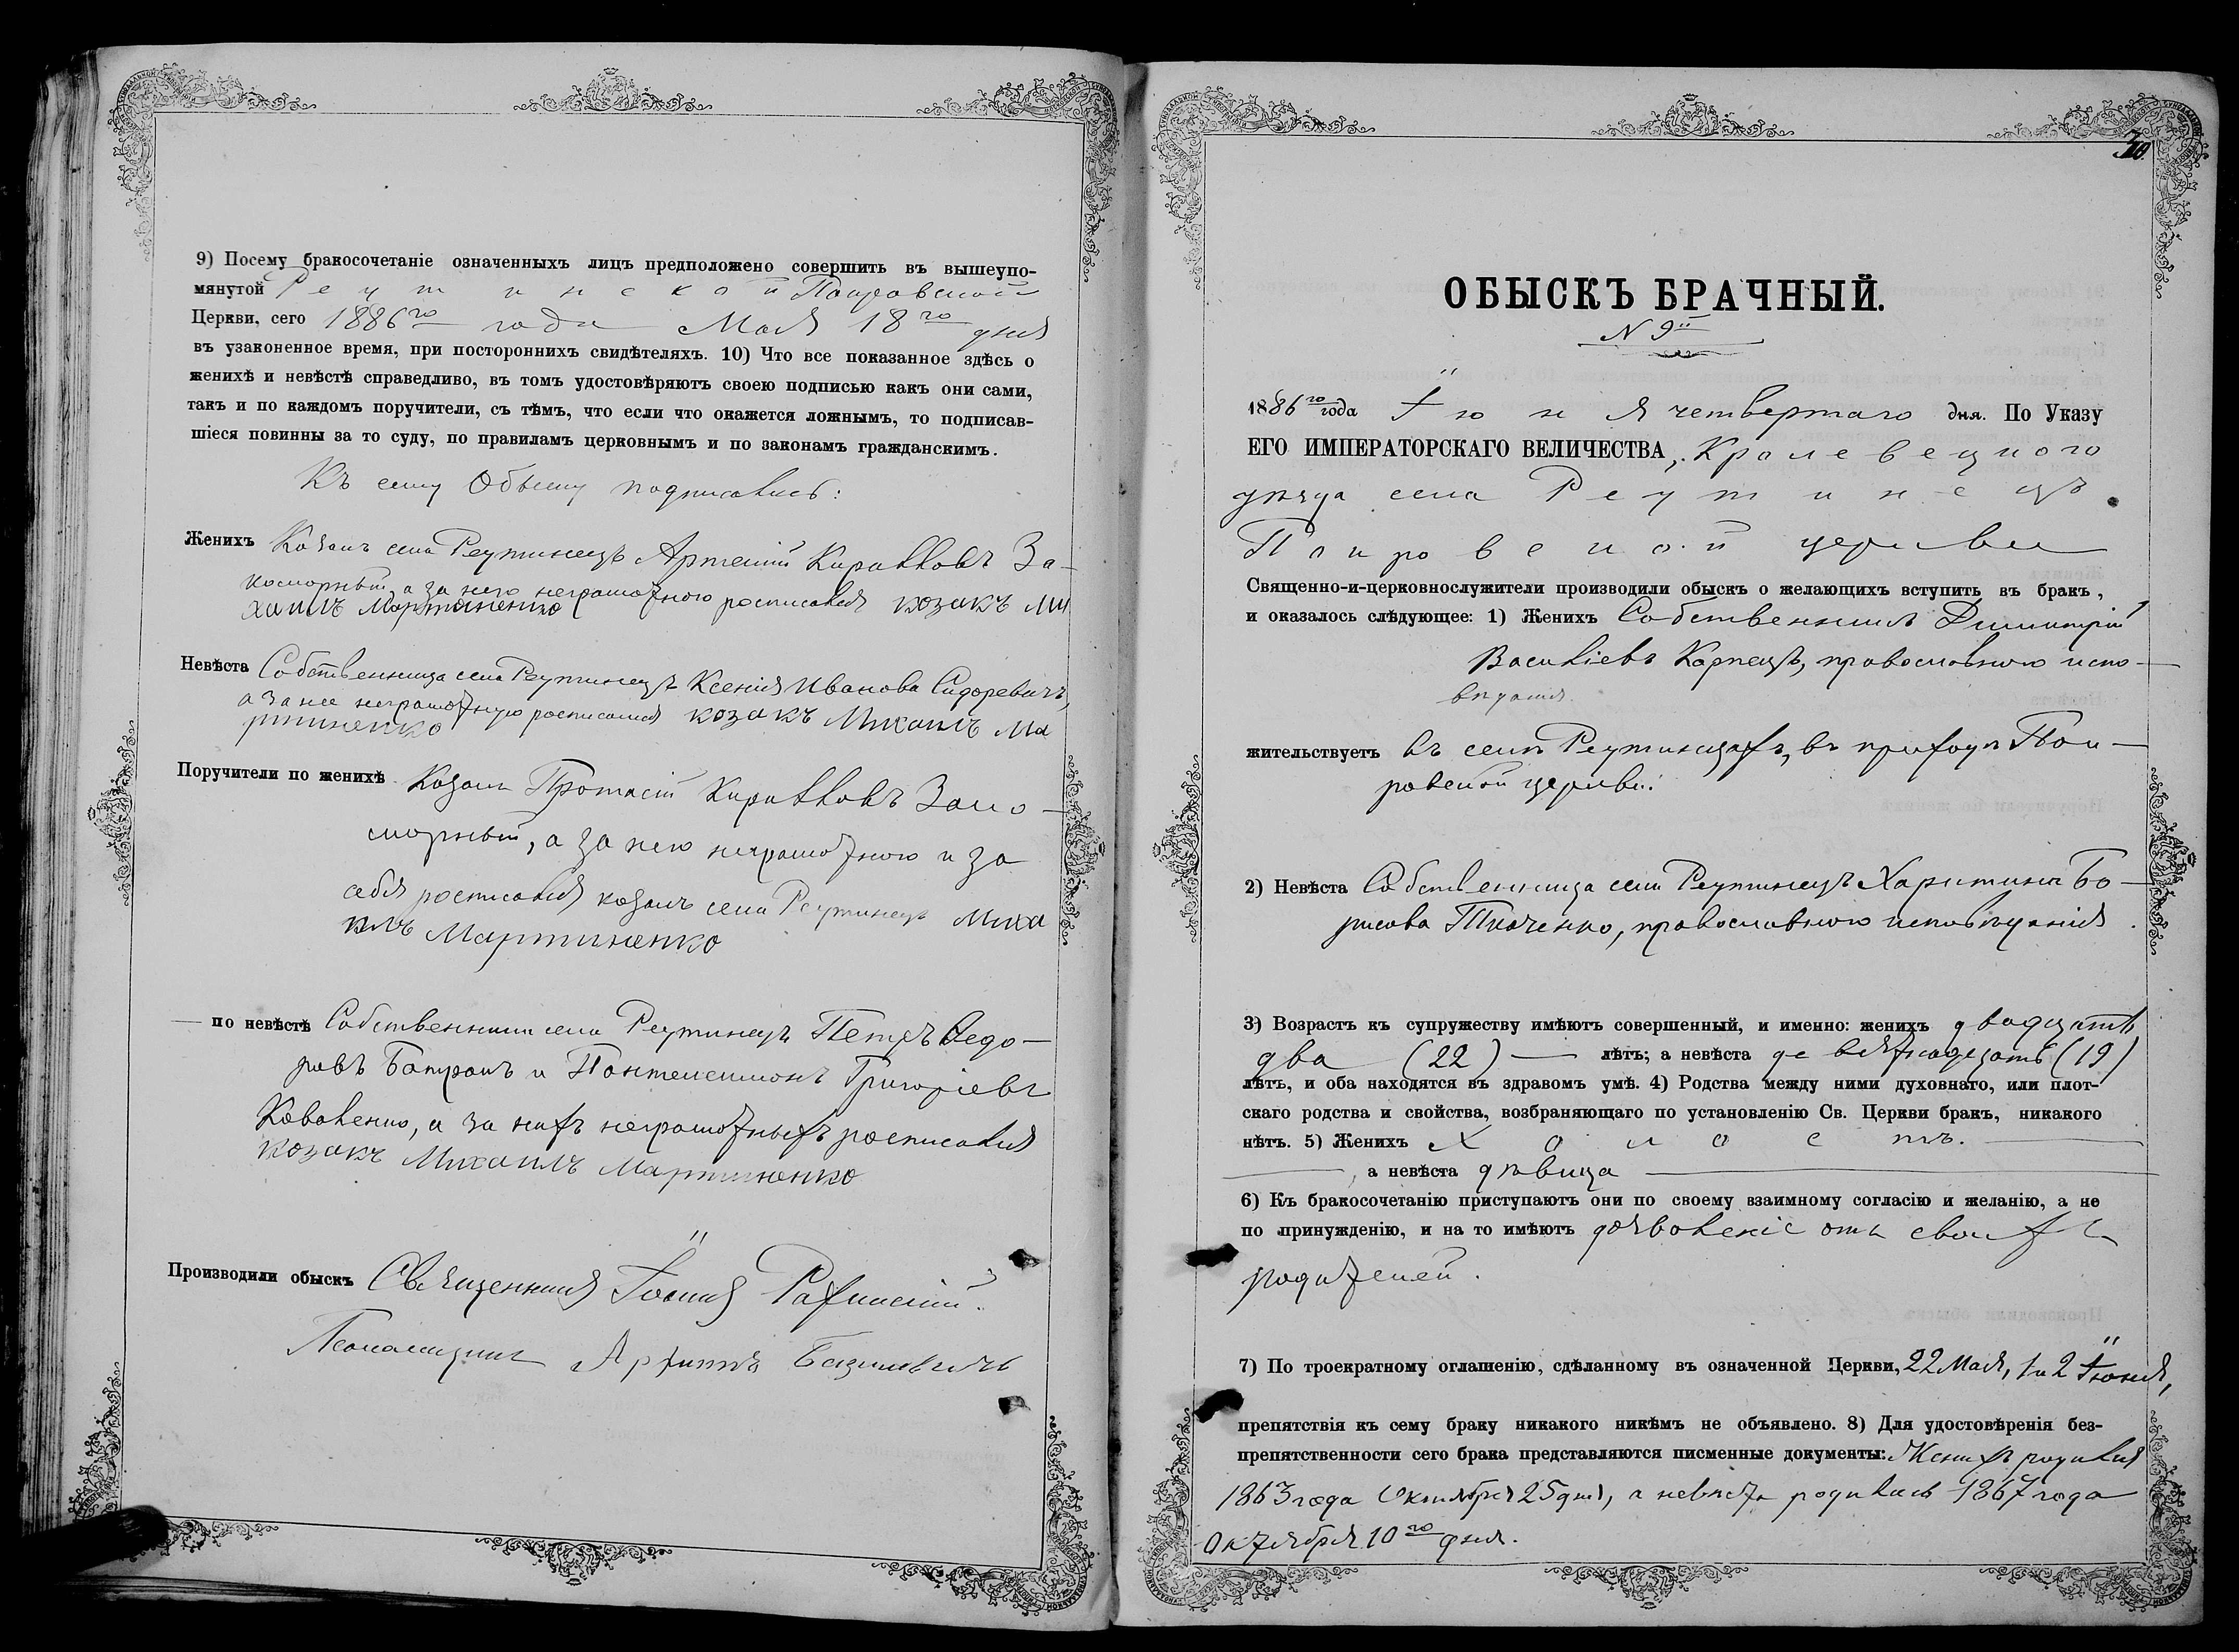 9) Посему бракосочетаніе означенныхъ лицъ предположено совершить въ вышеупо-
мянутой Реутинской Покровской
Церкви, сего 1886го года Мая 18го дня
въ узаконенное время, при постороннихъ свидѣтеляхъ. 10) Что все показанное здѣсь о
женихѣ и невѣстѣ справедливо, въ томъ удостовѣряютъ своею подписью какъ они сами,
такъ и по каждомъ поручители, съ тѣмъ, что если что окажется ложнымъ, то подписав-
шіеся повинны за то суду, по правиламъ церковнымъ и по законамъ гражданскимъ.
Къ сему Обыску подписались:
Женихъ Козакъ села Реутинецъ Артемій Кирилловъ За-
коморный, а за него неграмотного росписался козакъ Ми
хаилъ Мартиненко
Невѣста Собственница села Реутинецъ Ксенія Иванова Сидоревичъ,
а за нее неграмотную росписался козакъ Михаилъ Ма
ртиненко
Поручители по женихѣ Козакъ Протасій Кирилловъ Зако-
морный, а за него неграмотного и за
себя росписался козакъ села Реутинецъ Миха
илъ Мартиненко
— по невѣстѣ Собственники села Реутинецъ Петръ Ѳедо-
ровъ Батракъ и Пантелеимонъ Григоріевъ
Коваленко, а за нихъ неграмотныхъ росписался
козакъ Михаилъ Мартиненко
Производили обыскъ Священникъ Іоаннъ
ОБЫСКЪ БРАЧНЫЙ.
N 9й
1886го года Іюня четвертаго дня. По Указу
ЕГО ИМПЕРАТОРСКАГО ВЕЛИЧЕСТВА, Кролевецкого
уѣзда села Реутинецъ
Покровской церкви
Священно-и-церковнослужители производили обыскъ о желающихъ вступить въ бракъ,
и оказалось слѣдующее: 1) Женихъ Собственникъ Димитрій
Василіевъ Карпецъ, православного испо-
вѣданія.
жительствуетъ въ селѣ Реутинцахъ, въ приходѣ Пок-
ровской церкви.
2) Невѣста Собственница села Реутинецъ Харитина Бо-
рисова Ткаченко, православного исповѣданія.
3) Возрастъ къ супружеству имѣютъ совершенный, и именно: женихъ двадцать
два (22) — лѣтъ; а невѣста девятнадцать (19)
лѣтъ, и оба находятся въ здравомъ умѣ. 4) Родства между ними духовнаго, или плот-
скаго родства и свойства, возбраняющаго по установленію Св. Церкви бракъ, никакого
нѣтъ. 5) Женихъ Холостъ.
, а невѣста дѣвица
6) Къ бракосочетанію приступаютъ они по своему взаимному согласію и желанію, а не
по принужденію, и на то имѣютъ дозволеніе отъ своихъ
родителей.
7) По троекратному оглашенію, сдѣланному въ означенной Церкви, 22 Мая, 1 и 2 Іюня,
препятствія къ сему браку никакого никѣмъ не объявлено. 8) Для удостовѣренія без-
препятственности сего брака представляются писменные документы: Женихъ родился
1863 года Октября 25 дня, а невѣста родилась 1867 года
Октября 10го дня.